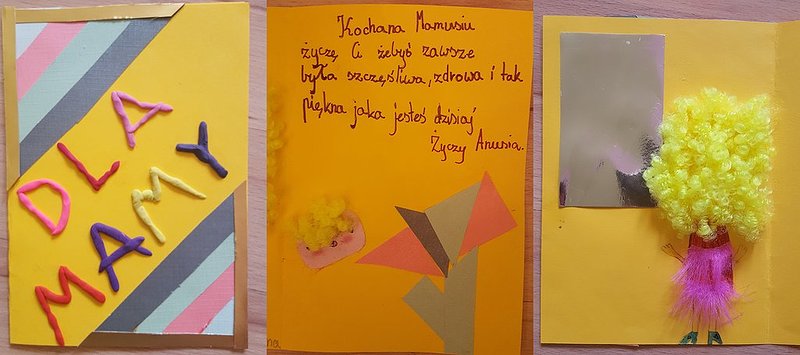 DLA
MAMY
Kochana Mamusiu
życzę Ci żebyś zawsze
była szczęśliwa, zdrowa i tak
piękna jaka jesteś dzisiaj
Życzy Anusia.